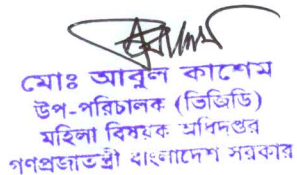 মোঃ আবুল কাশেম
উপ-পরিচালক (ভিজিডি)
মহিলা বিষয়ক অধিদপ্তর
গণপ্রজাতন্ত্রী বাংলাদেশ সরকার